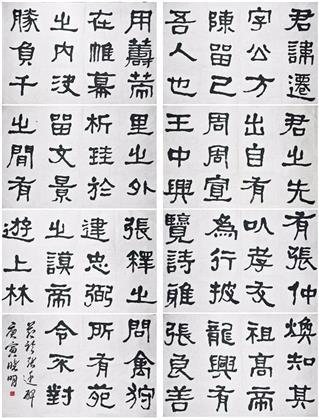 君諱遷
字公方
陳留己
吾人也
君之先
出自有
周周宣
王中興
有張仲
以孝友
為行披
覽詩雅
煥知其
祖高帝
龍興有
張良善
用籌策
在帷幕
之內決
勝負千
里之外
析珪於
留文景
之間有
張釋之
建忠弼
之謨帝
遊上林
問禽狩
所有苑
令不對
張遷碑
曉明